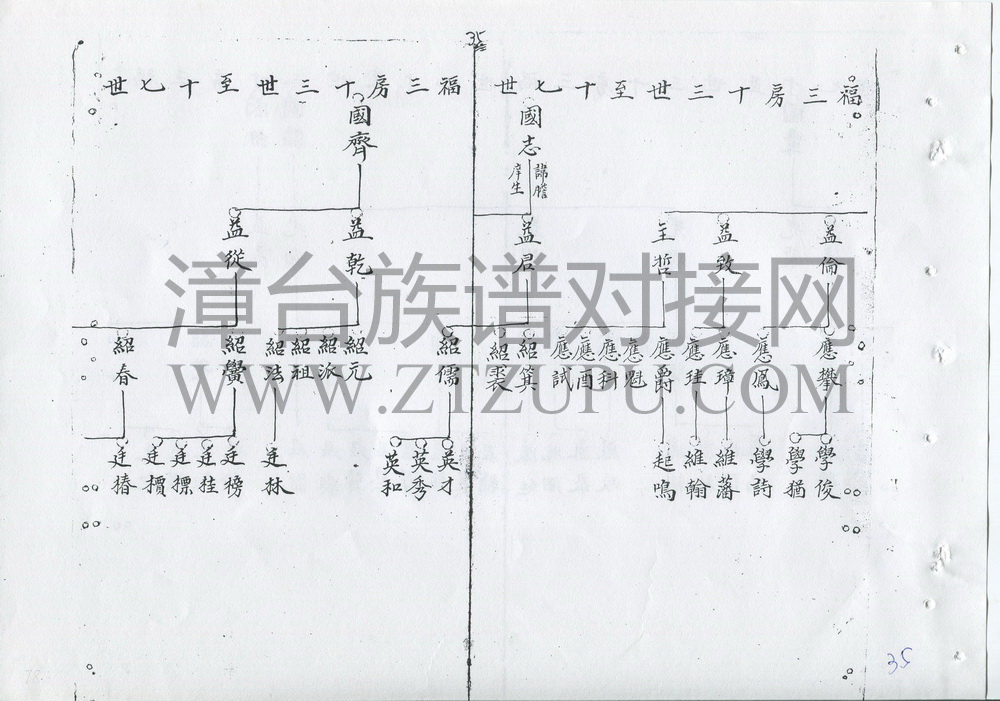 35
福三房十三世至十七世
國志
諱膽
庠生
益倫
益致
主哲
益君
應攀
應鳳
應璋
應珪
應爵
應魁
應科
應酉
應試
紹箕
紹裘
紹儒
學俊
學猶
學詩
維藩
維翰
起鳴
英才
英秀
英和
福三房十三世至十七世
國齊
益乾
益從
紹元
紹派
紹祖
紹法
紹黌
紹春
廷林
廷榜
廷桂
廷標
廷櫝
廷椿
漳台族谱对接网
WWW.ZTZUPU.COM
35